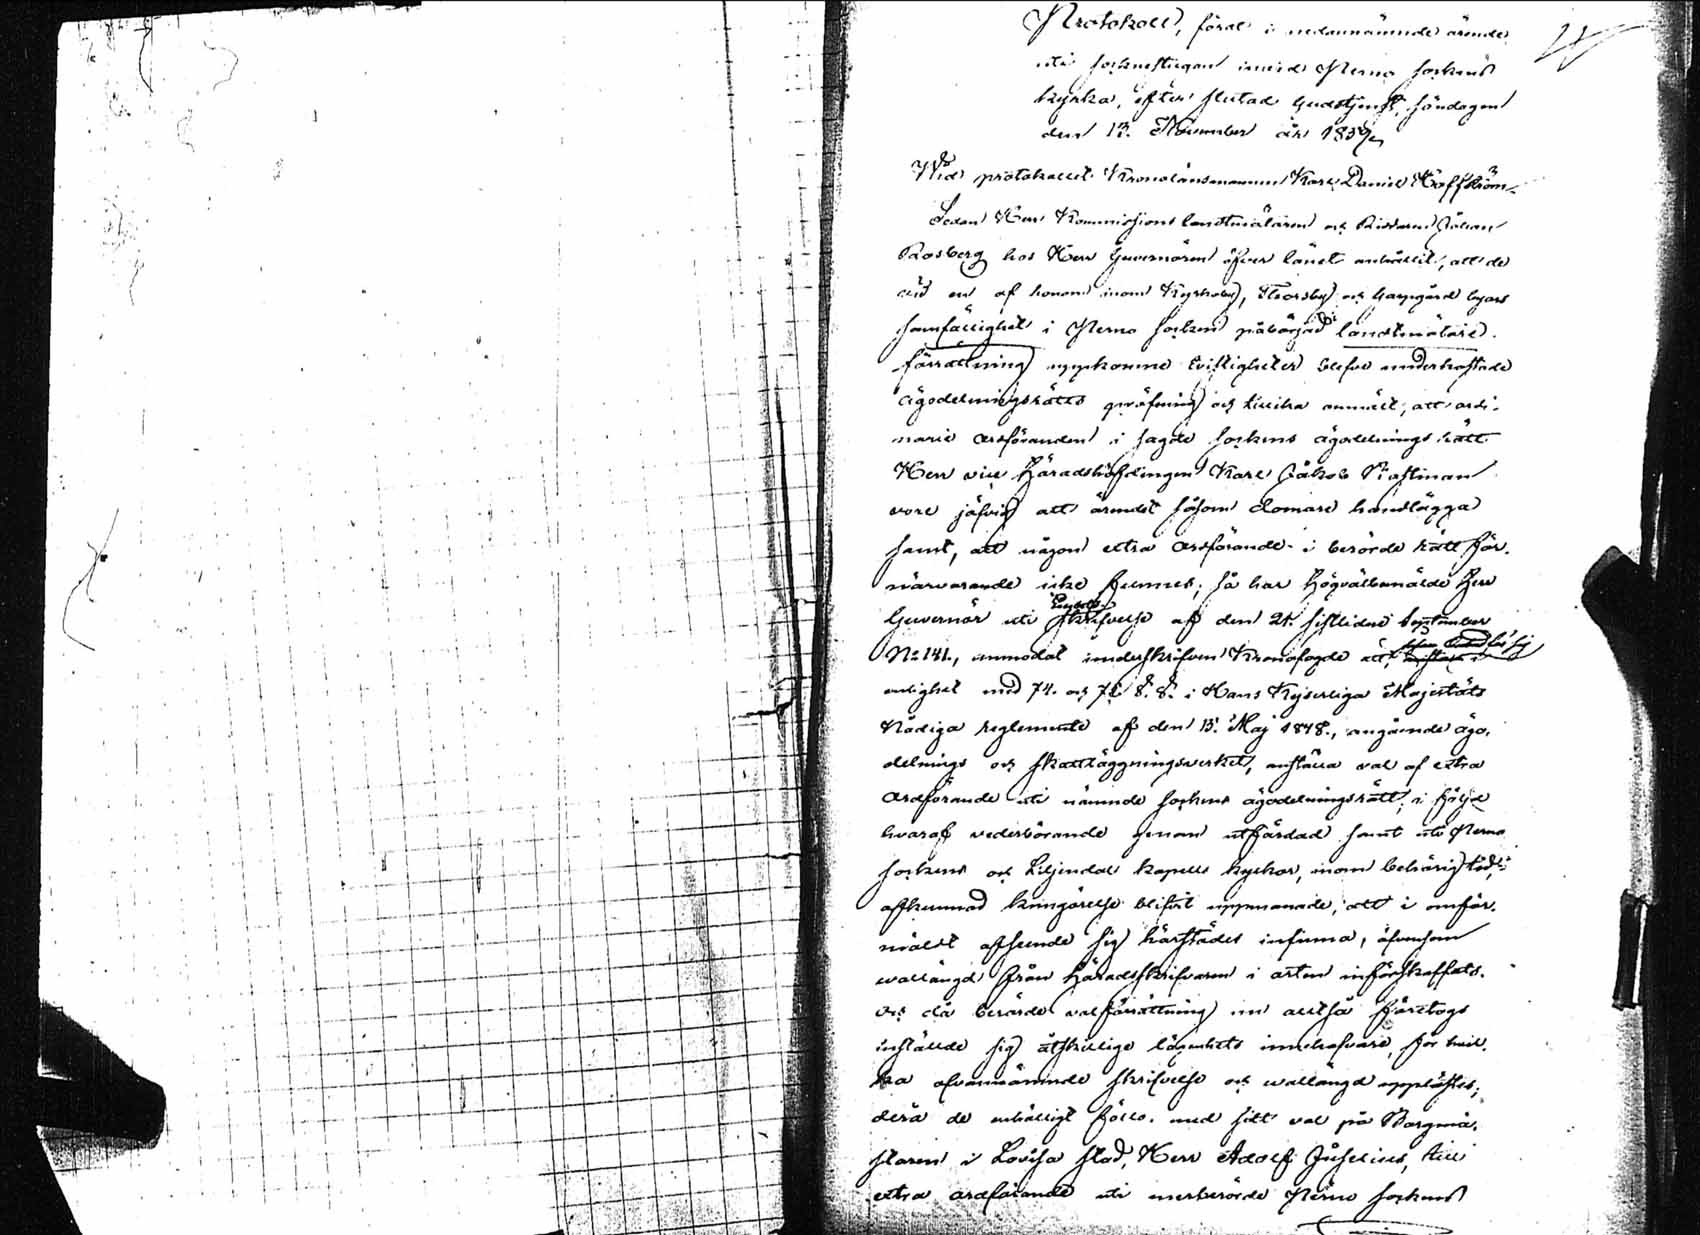 Protokoll, fördt i nedannämnde ärende
uti sockenstugan invid Perno sockens
kyrka, efter slutad Gudstjenst, söndagen
den 13. November år 1859,
Wid protokollet Kronolänsmannen Karl Daniel Höffström.
Sedan Herr Kommissions landtmätaren och Riddaren Johan
Rosberg hos Herr Guvernören öfver länet anhållit, att de
vid en af honom inom Kyrkoby, Thorsby och Havsgård byars
samfällighet i Perno socken påbörjad landtmätare-
förrättning uppkomne tvistigheter blefve underkastade
Ägodelningsrätts pröfning och tillika anmält, att ordi-
narie ordföranden i sagde sockens ägodelnings rätt
Herr vice Häradshöfdingen Karl Jakob Kastman
vore jäfvig att ärendet såsom domare handlägga
samt, att någon extra ordförande i berörde rätt för
närvarande icke funnes; så har Högvälbemälde Herr
Guvernör uti skrifvelse af den 21. sistlidne September
No 141., anmodat underskrifven Kronofogde att
enlighet med 74. och 75 §.§. i Hans Kejserliga Majestäts
Nådiga reglemente af den 15. Maj 1848., angående ägo-
delnings och skattläggningsverket, anställa val af extra
Ordförande uti nämnde sockens ägodelningsrätt; i följd
hvaraf vederbörande genom utfärdad samt uti Perno
sockens och Liljendal kapells kyrkor, inom behörig tid,
afkunnad kungörelse blifvit uppmanade, att i omför-
mäldt afseende sig härstädes infinna, äfvensom
vallängd från Häradsskrifvaren i orten införskaffats.
Och då berörde valförrättning nu alltså företogs
inställde sig åtskillige lägenhets innehafvare, för hvil-
ka ofvannämnde skrifvelse och vallängd upplästes,
derå de enhälligt föllo med sitt val på Borgmä-
staren i Lovisa stad, Herr Adolf Juselius, till
extra ordförande uti merberörde Perno sockens